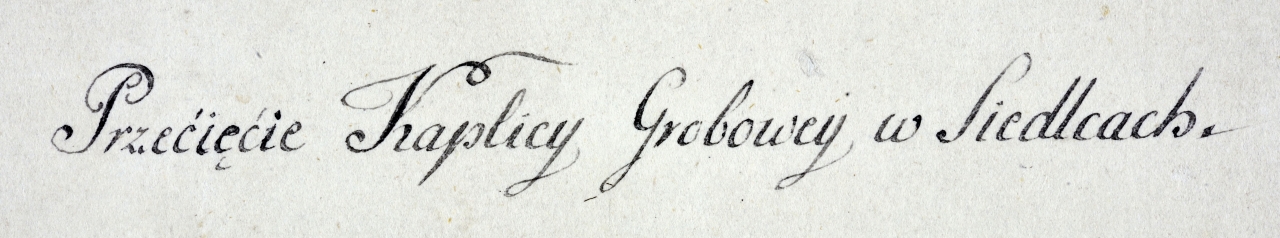 Przećięćie Kaplicy Grobowey w Siedlcach.